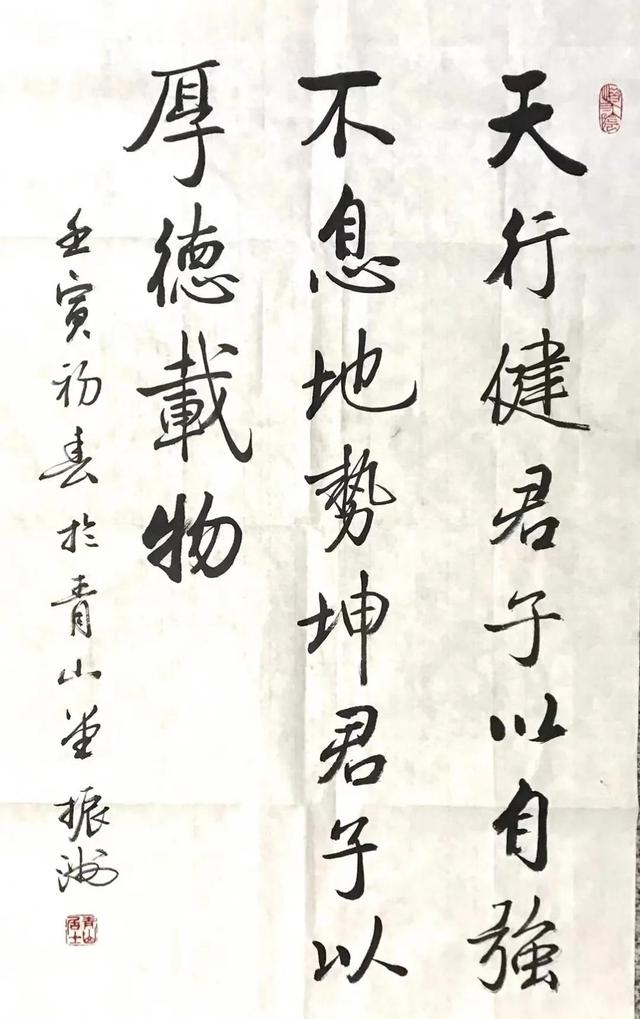 天行健君子以自強
不息地勢坤君子以
厚德載物
壬寅初春於青山堂振洲
青山居士